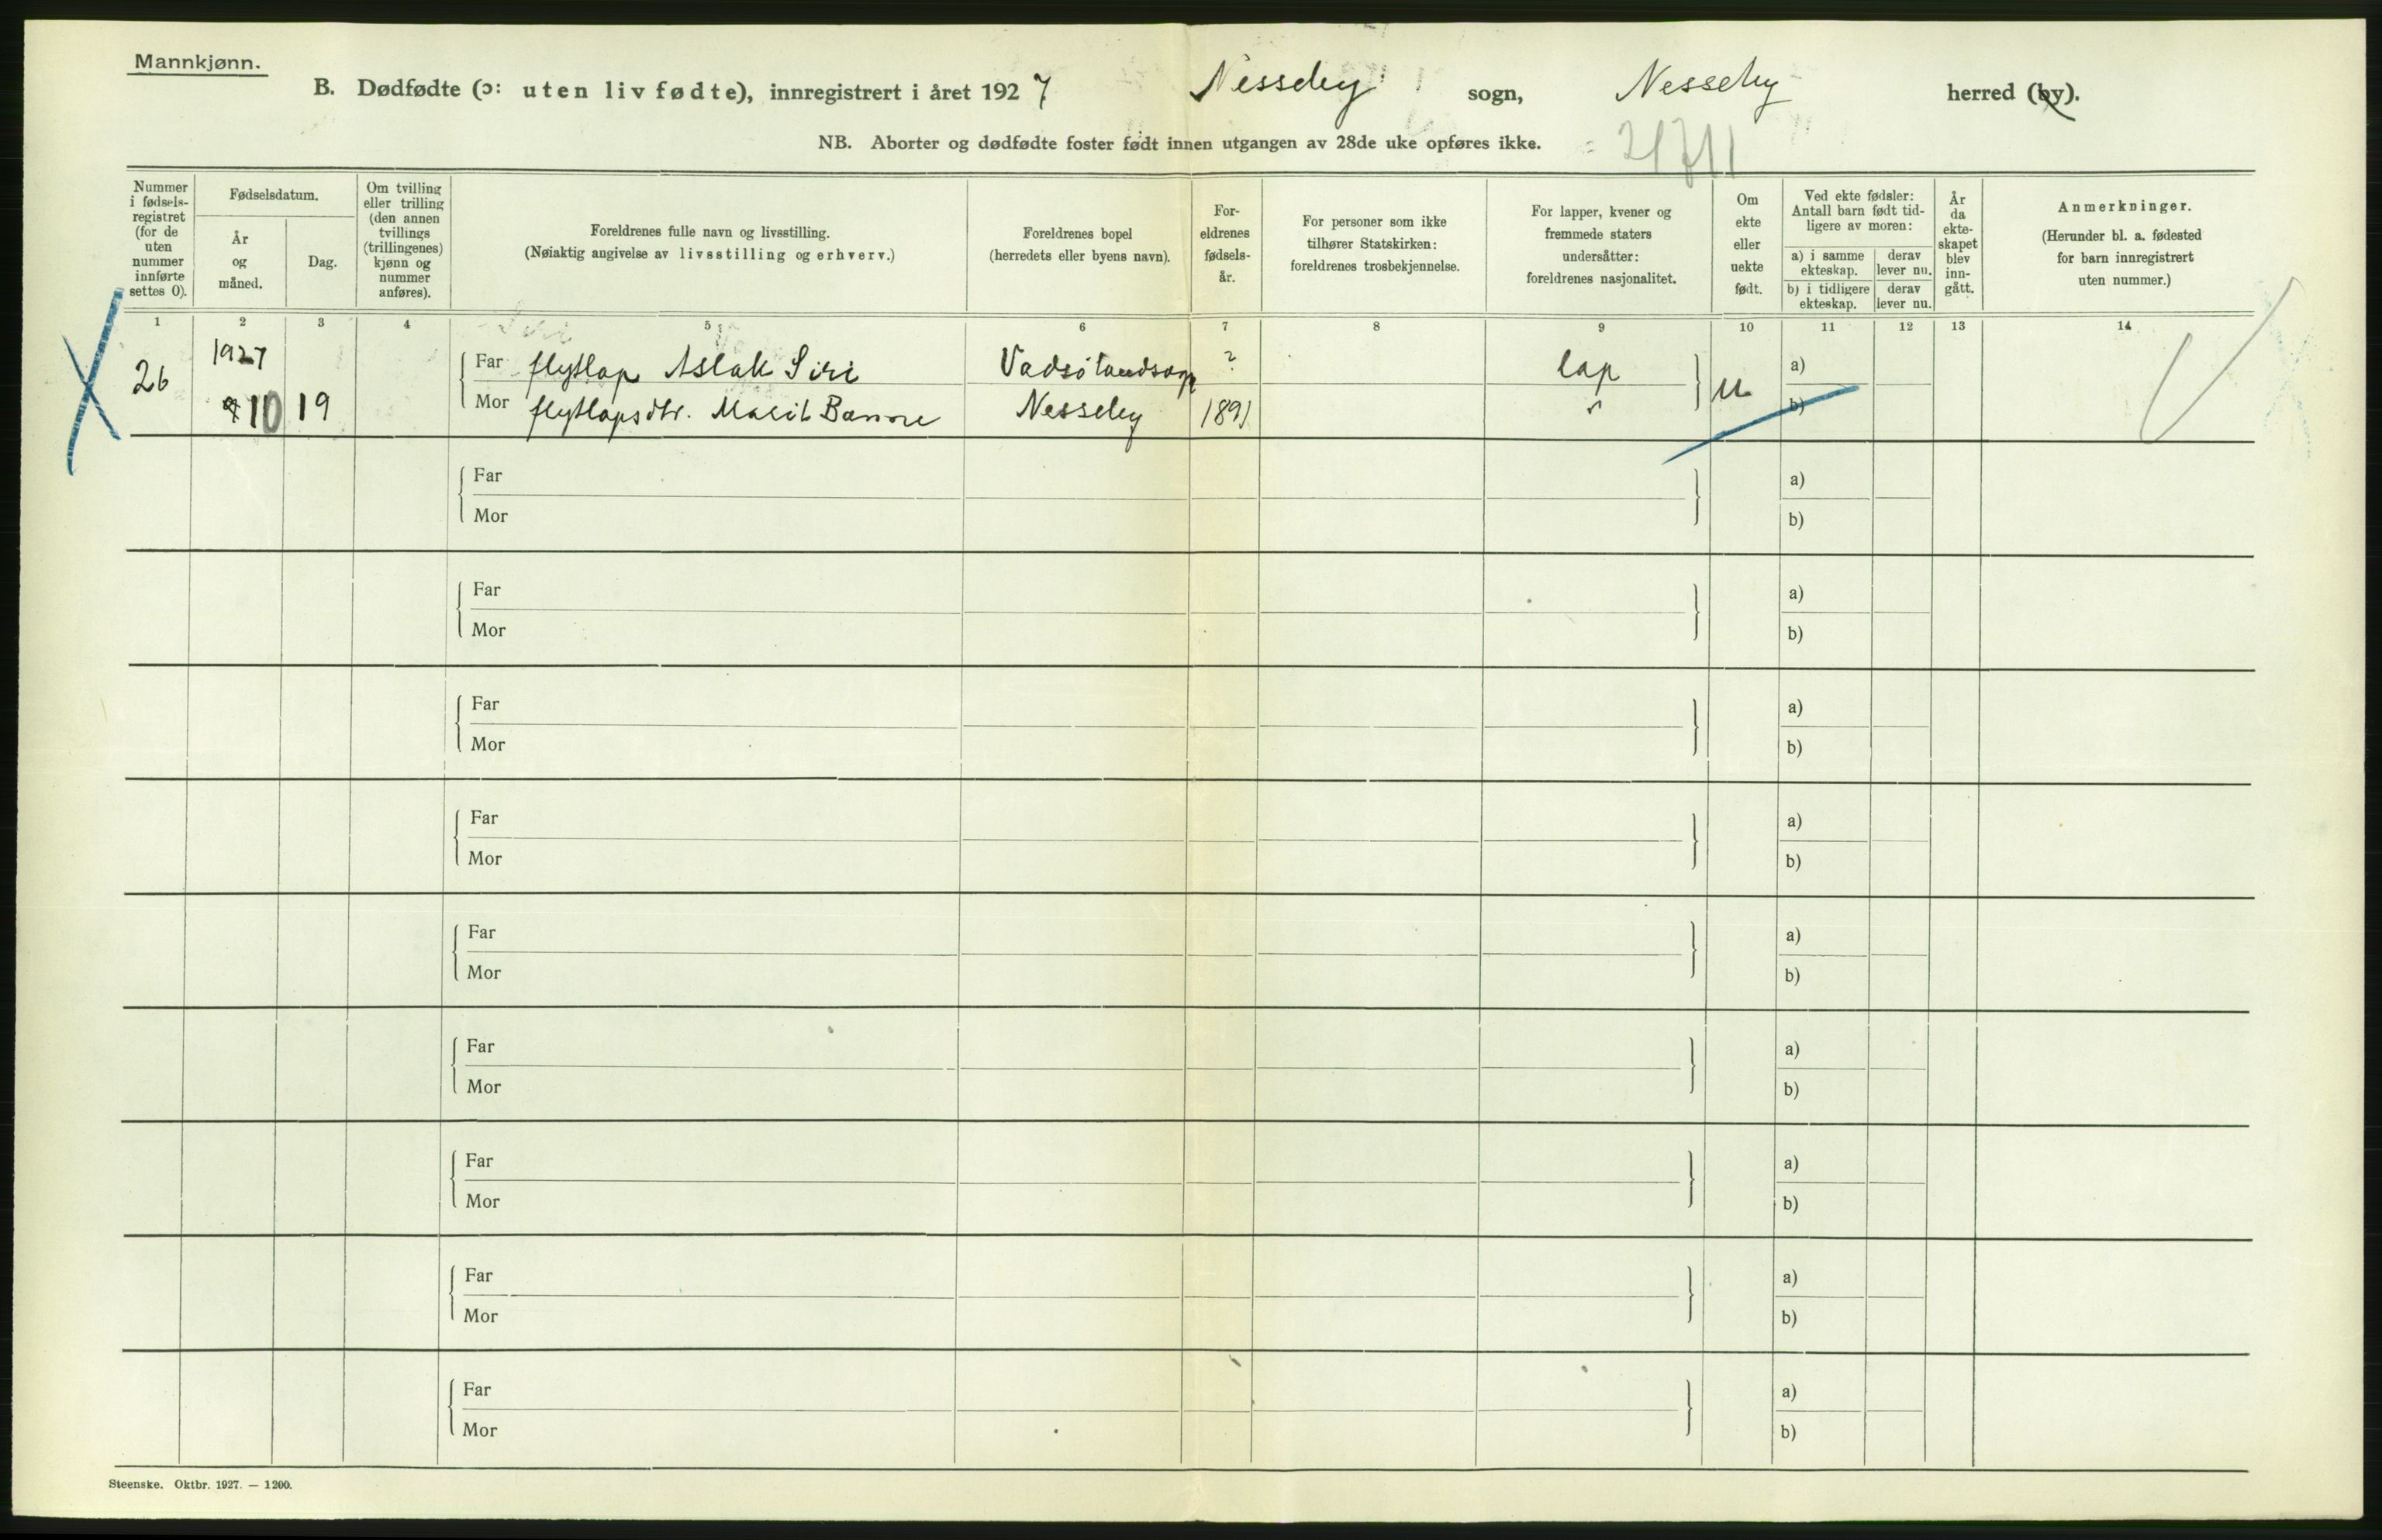 Mannkjønn.
B. Dødfødte (ɔ: uten liv fødte), innregistrert i året 1927 Nesseby sogn, Nesseby herred (by).
NB. Aborter og dødfødte foster født innen utgangen av 28de uke opføres ikke.
Nummer i fødsels-registret (for de uten nummer innførte settes 0).
Fødselsdatum.
År og måned.
Dag.
Om tvilling eller trilling (den annen tvillings (trillingenes) kjønn og nummer anføres).
Foreldrenes fulle navn og livsstilling.
(Nøiaktig angivelse av livsstilling og erhverv.)
Foreldrenes bopel
(herredets eller byens navn).
For-eldrenes fødsels-år.
For personer som ikke tilhører Statskirken: foreldrenes trosbekjennelse.
For lapper, kvener og fremmede staters undersåtter: foreldrenes nasjonalitet.
Om ekte eller uekte født.
Ved ekte fødsler: Antall barn født tid-ligere av moren:
a) i samme ekteskap.
derav lever nu.
b) i tidligere ekteskap.
derav lever nu.
År da ekte-skapet blev inn-gått.
Anmerkninger.
(Herunder bl. a. fødested for barn innregistrert uten nummer.)
1 2 3 4 5 6 7 8 9 10 11 12 13 14
26 1927 10 19
Far flytlap Aslak Siri Vadsø landsogn ? lap u. a)
Mor flytlapsdtr. Marit Banne Nesseby 1891 " b)
Far a)
Mor b)
Far a)
Mor b)
Far a)
Mor b)
Far a)
Mor b)
Far a)
Mor b)
Far a)
Mor b)
Far a)
Mor b)
Far a)
Mor b)
Far a)
Mor b)
Steenske. Oktbr. 1927. — 1200.